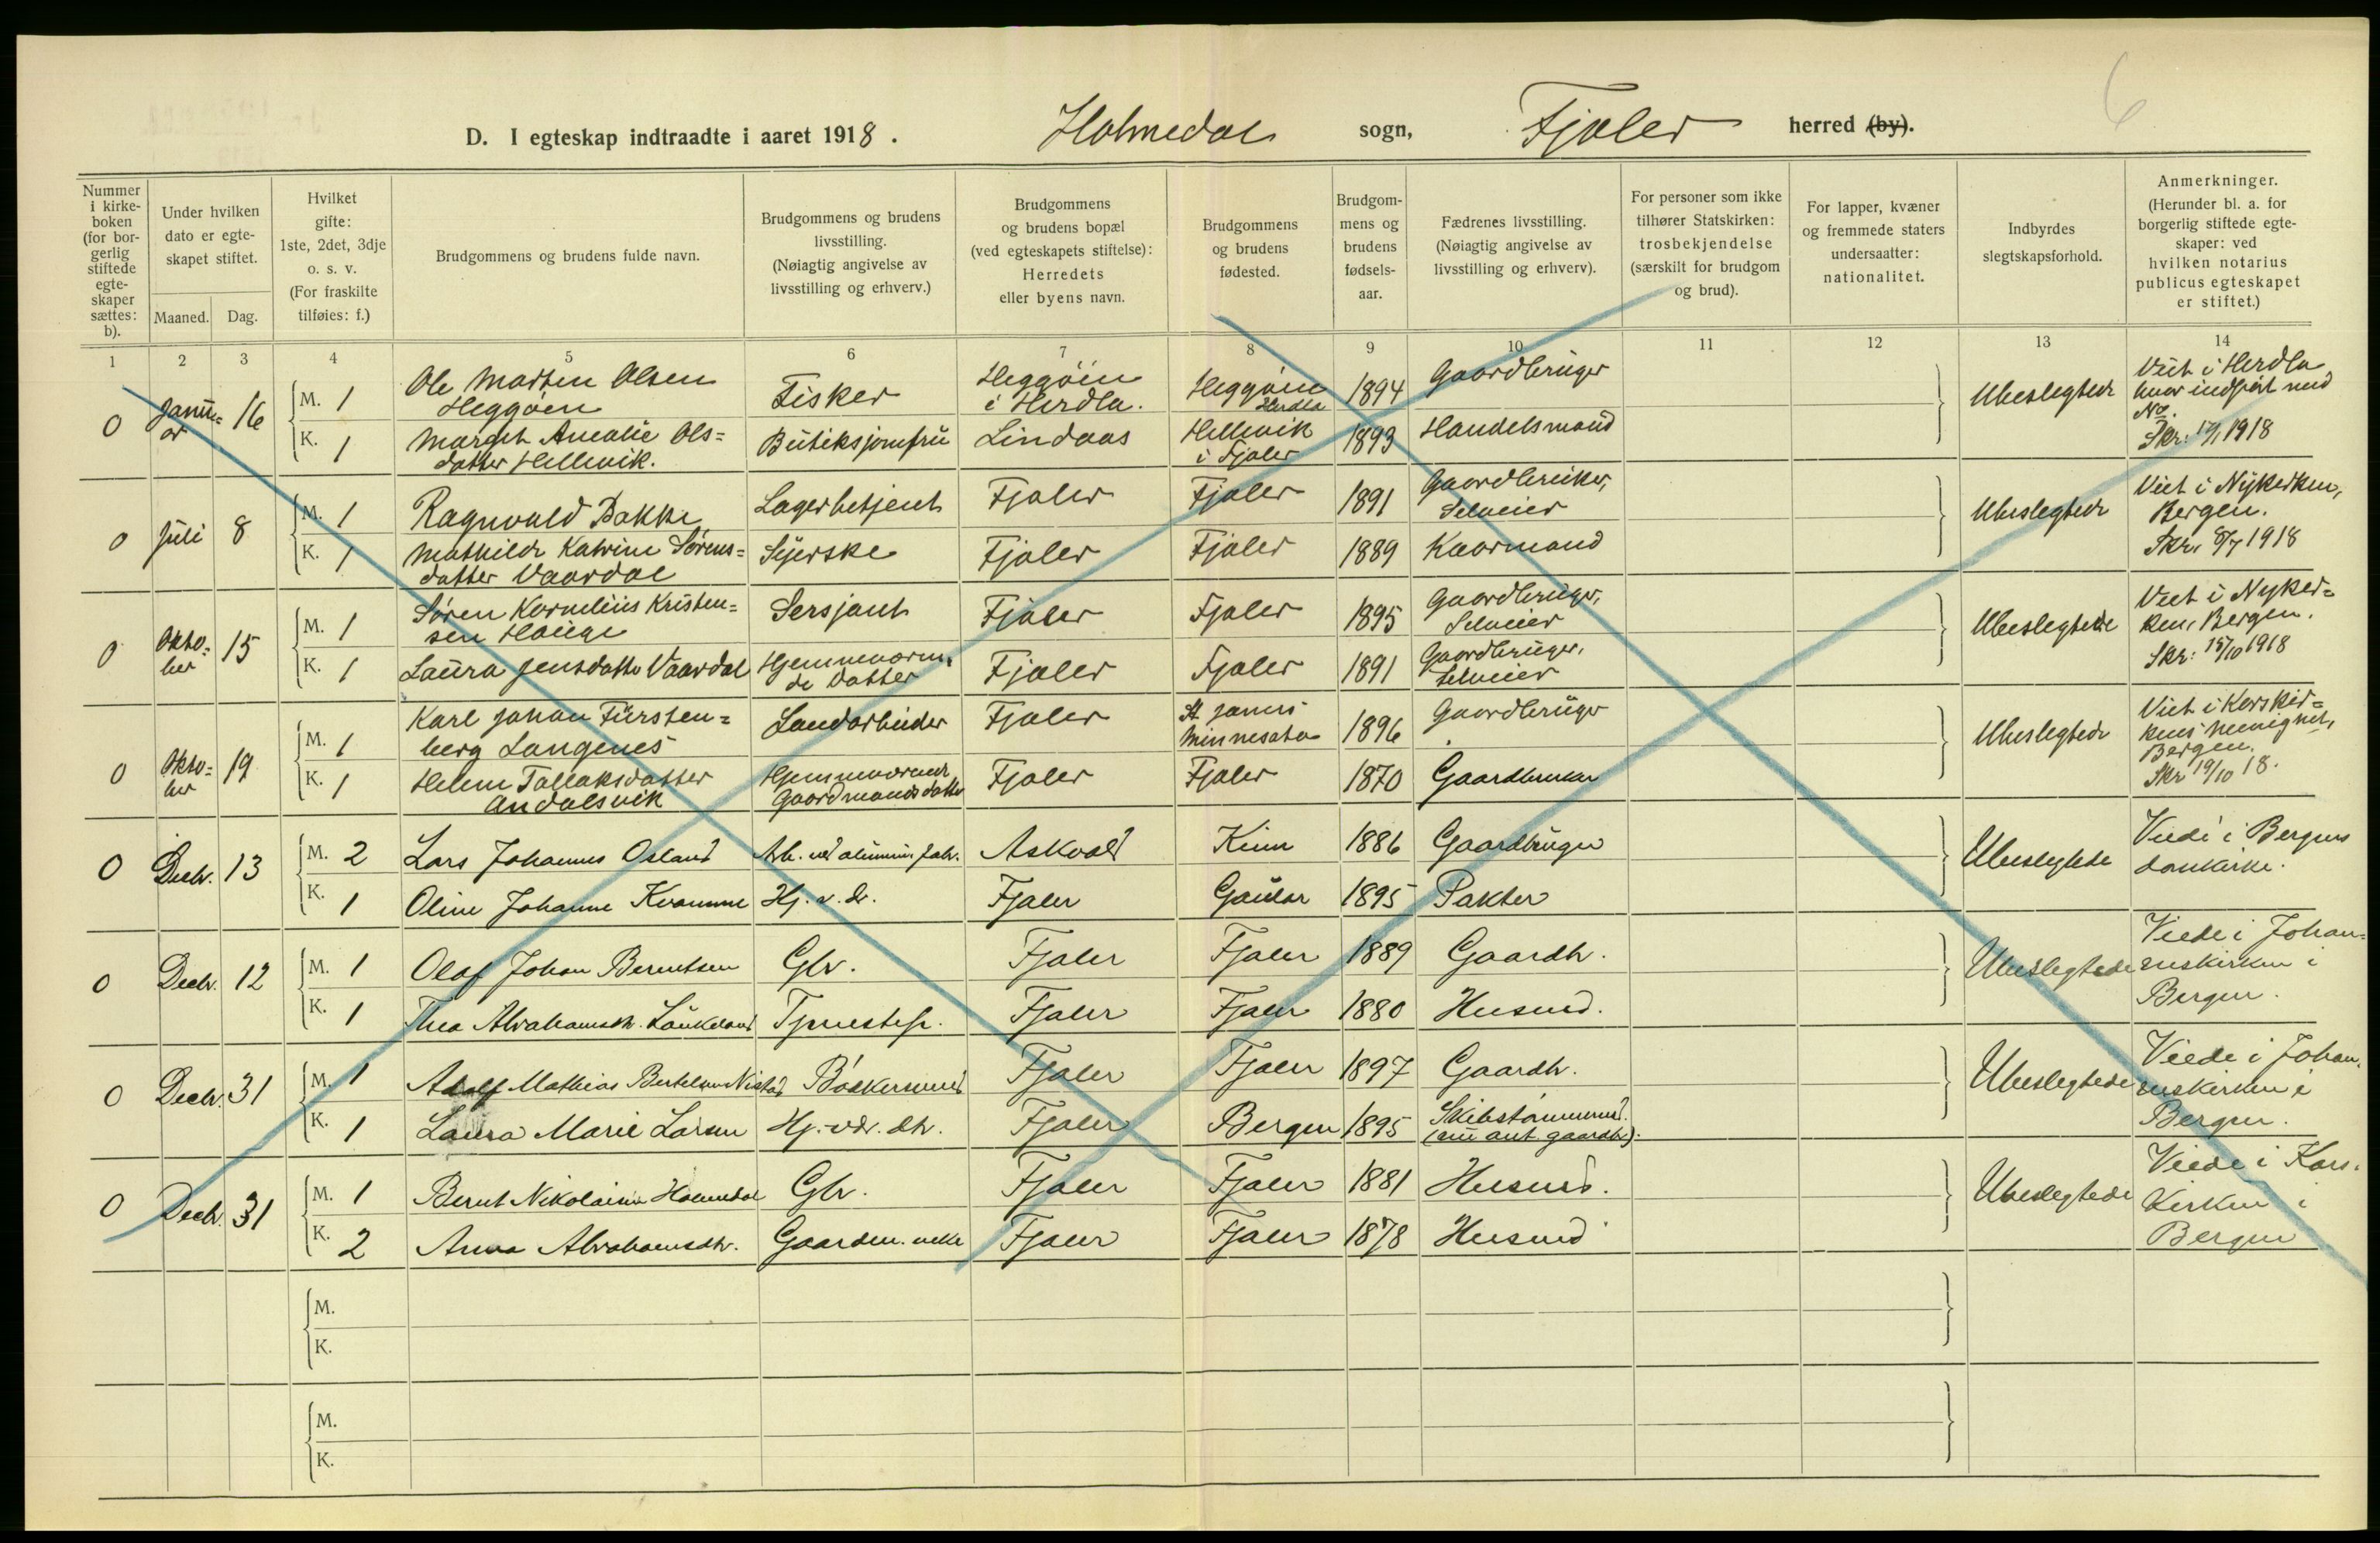 6
D. I egteskap indtraadte i aaret 1918. Holmedal sogn, Fjaler herred (by).
Nummer i kirkeboken (for borgerlig stiftede egteskaper sættes: b).
Under hvilken dato er egteskapet stiftet.
Maaned. Dag.
Hvilket gifte: 1ste, 2det, 3dje o. s. v. (For fraskilte tilføies: f.)
Brudgommens og brudens fulde navn.
Brudgommens og brudens livsstilling. (Nøiagtig angivelse av livsstilling og erhverv.)
Brudgommens og brudens bopæl (ved egteskapets stiftelse): Herredets eller byens navn.
Brudgommens og brudens fødested.
Brudgommens og brudens fødselsaar.
Fædrenes livsstilling. (Nøiagtig angivelse av livsstilling og erhverv).
For personer som ikke tilhører Statskirken: trosbekjendelse (særskilt for brudgom og brud).
For lapper, kvæner og fremmede staters undersaatter: nationalitet.
Indbyrdes slegtskapsforhold.
Anmerkninger. (Herunder bl. a. for borgerlig stiftede egteskaper: ved hvilken notarius publicus egteskapet er stiftet.)
1 2 3 4 5 6 7 8 9 10 11 12 13 14
0 Januar 16 M. 1 Ole Martin Olsen Heggöen Fisker Heggöen i Herdla. Heggöen Herdla 1894 Gaardbruger Ubeslegtede Viet i Herdla hvor indført med No. Skr: 17/1 1918
K. 1 Margit Amalie Olsdatter Hellevik. Butiksjomfru Lindaas Hellevik i Fjaler 1893 Handelsmand
0 Juli 8 M. 1 Ragnvald Bakke Lagerbetjent Fjaler Fjaler 1891 Gaardbruker, Selveier Ubeslegtede Viet i Nykirken, Bergen. Skr. 8/7 1918
K. 1 Mathilde Katrine Sørensdatter Vaardal Syerske Fjaler Fjaler 1889 Kaarmand
0 Oktober 15 M. 1 Søren Kornelius Kristensen Hauge Sersjant Fjaler Fjaler 1895 Gaardbruger, Selveier Ubeslegtede Viet i Nykirken, Bergen. Skr: 15/10 1918
K. 1 Laura Jensdatter Vaardal Hjemmeværende datter Fjaler Fjaler 1891 Gaardbruger, Selveier
0 Oktober 19 M. 1 Karl Johan Fürstenberg Langenes Landarbeider Fjaler St James Minnesota 1896 Gaardbruger Ubeslegtede Viet i Korskirkens menighet, Bergen. Skr 19/10 18.
K. 1 Helene Tollaksdatter Andalsvik Hjemmeværende Gaardmandsdatter Fjaler Fjaler 1870 Gaardbruker
0 Decbr. 13 M. 2 Lars Johannes Osland Arb. ved alumin. fabr. Askvold Kinn 1886 Gaardbruger Ubeslegtede Viede i Bergens domkirke.
K. 1 Oline Johanne Kvamme Hj. v. d. Fjaler Gaular 1895 Pakter
0 Decbr. 12 M. 1 Olaf Johan Berentsen Gbr. Fjaler Fjaler 1889 Gaardbr. Ubeslegtede Viede i Johanneskirken i Bergen.
K. 1 Thea Abrahamsdtr. Laukeland Tjenestep. Fjaler Fjaler 1880 Husmd.
0 Decbr. 31 M. 1 Adolf Mathias Bertelsen Nistad Bökersvend Fjaler Fjaler 1897 Gaardbr. Ubeslegtede Viede i Johanneskirken i Bergen.
K. 1 Laura Marie Larsen Hj. vær. dtr. Fjaler Bergen 1895 Skibstømmermd.
0 Decbr. 31 M. 1 Bernt Nikolaisen Holmedal Gbr. Fjaler Fjaler 1881 Husmd. Ubeslegtede Viede i Korskirken i Bergen
K. 2 Anna Abrahamsdtr. Gaardm. enke Fjaler Fjaler 1878 Husmd
M.
K.
M.
K.